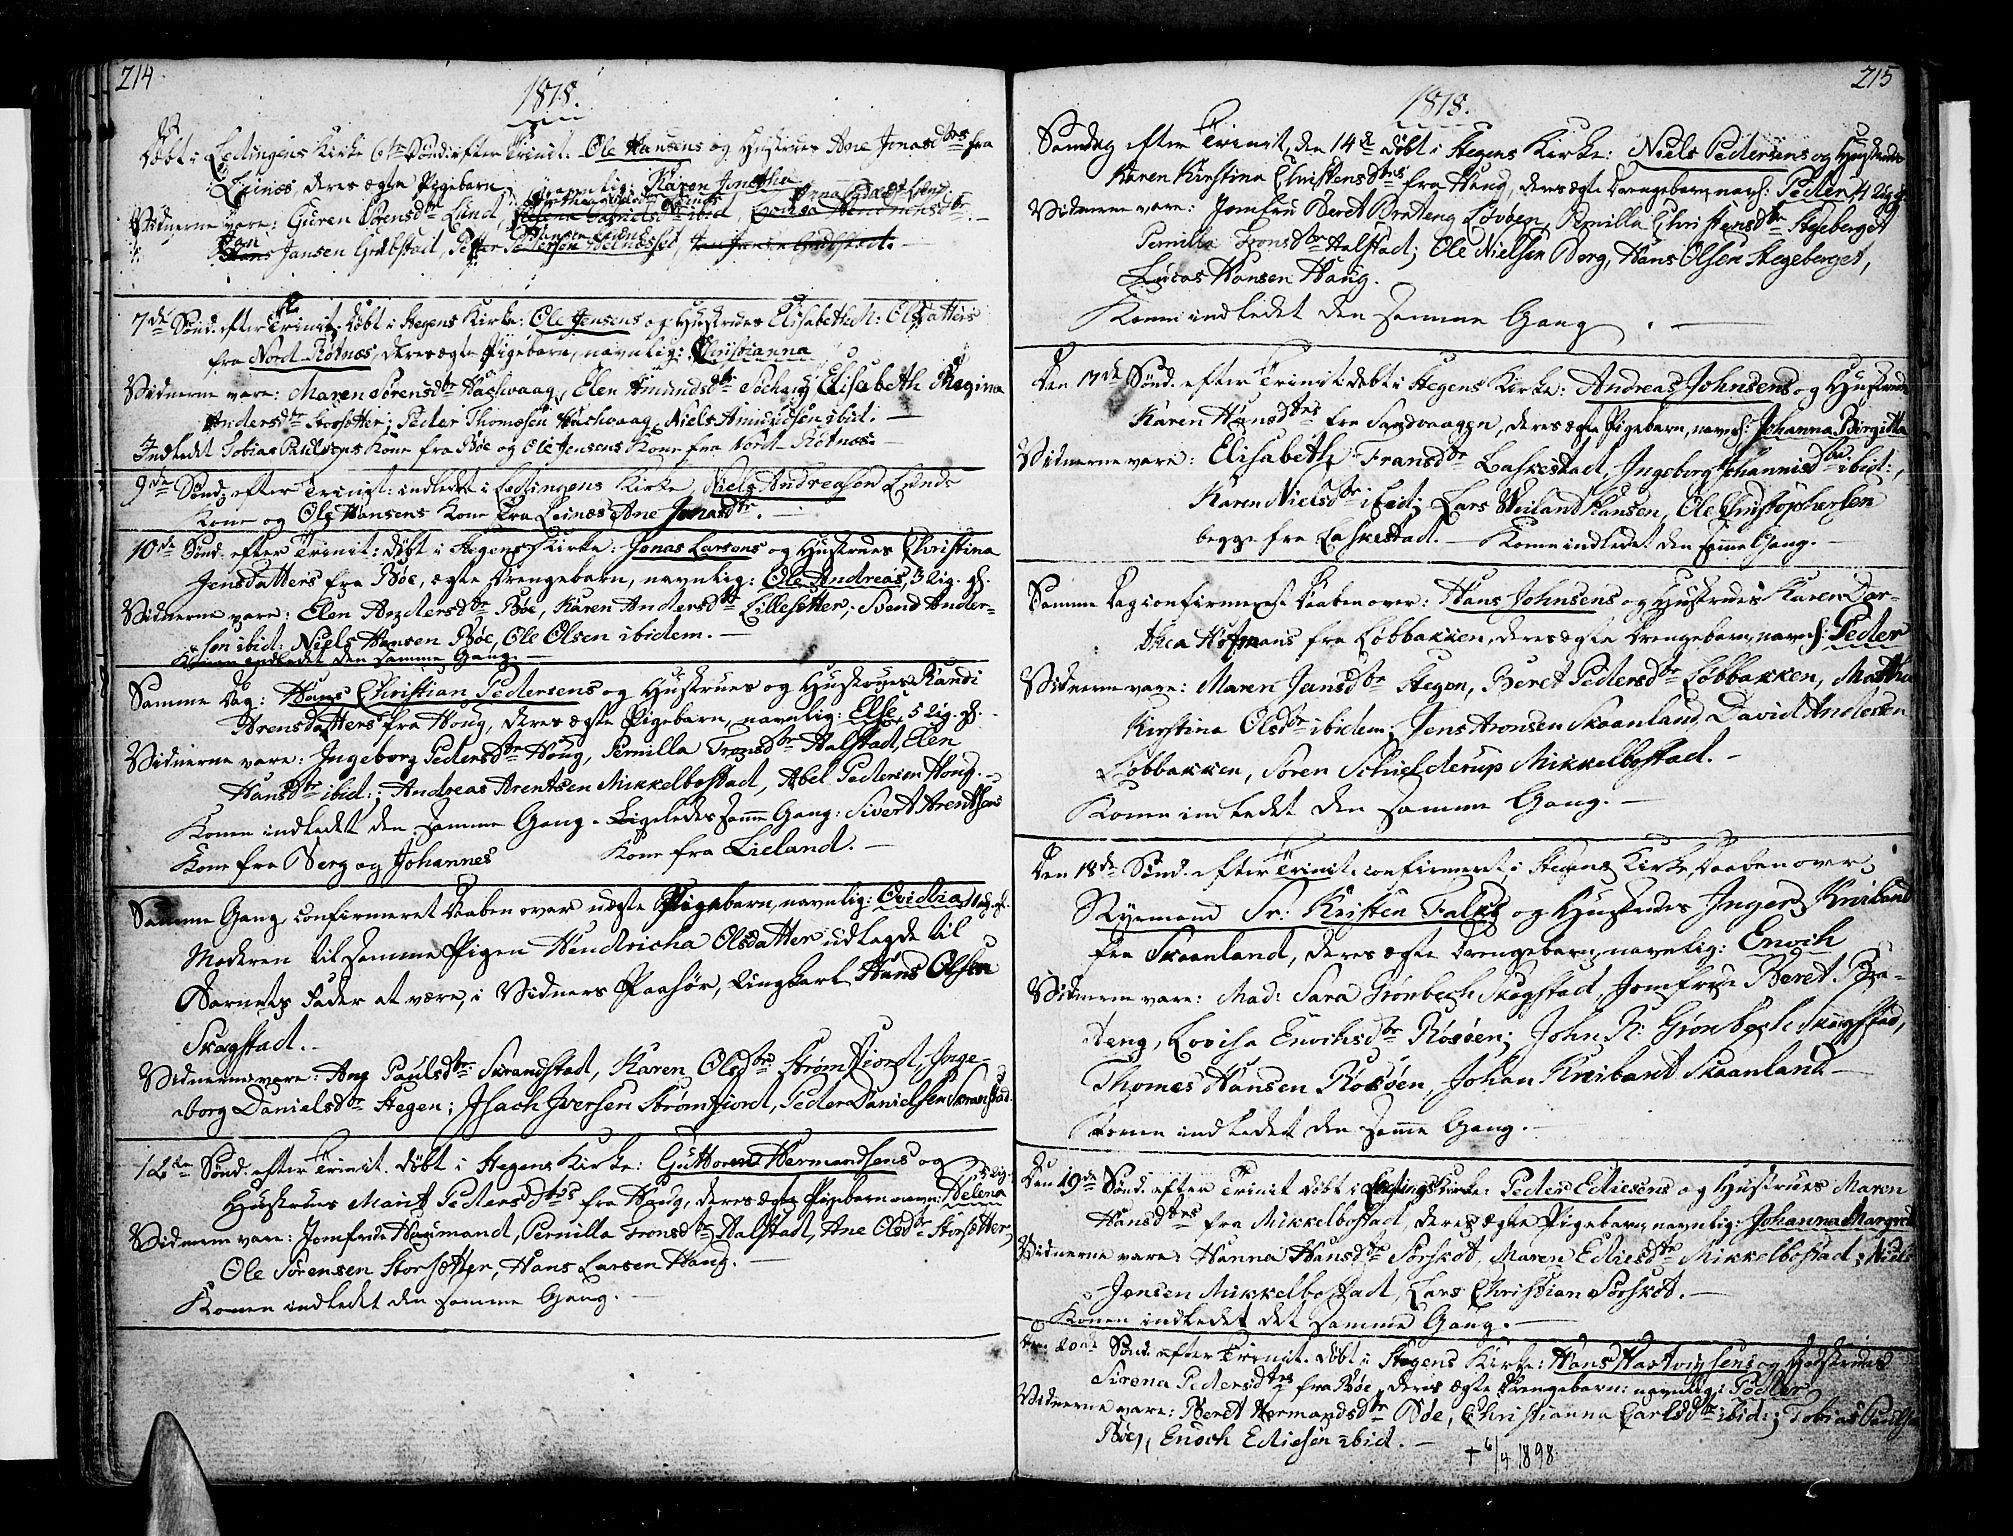 214
1818.
Døbt i Lødingens Kirke 6te Sønd. efter Trinit. Ole Hansens og Hustrues Ane Jonasdtrs fra
Leines, deres ægte Pigebarn, navnlig: Karen Jonetha
Vidnerne vare: Guren Sørensdtr Lund,
Jansen Grøbstad, Petter Pedersen
7de Sønd. efter Trinit. døbt i Stegens Kirke: Ole Jensens og Hustrues Elisabeth Olsdatters
fra Nord Røtnæs, deres ægte Pigebarn, navnlig: Christianna
Vidnerne vare: Maren Sørensdtr Hashvaag, Elen Amundsdtr Elisabeth Regina
Andersdtr Storsetter; Peder Thomesen Hashvaag, Niels Amundsen ibid. —
Indledet Tobias Paulsens Kone fra Bøe og Ole Jensens Kone fra Nord Røtnæs. —
9de Sønd: efter Trinit: indledet i Lødingens Kirke Niels Andreasen Lunds
Kone og Ole Hansens Kone fra Leinæs Ane Jonasdtr. —
10de Sønd. efter Trinit: døbt i Stegens Kirke: Jonas Larsens og Hustrues Christina
Jensdatters fra Bøe, ægte Drengebarn, navnlig: Ole Andreas, 3 Ug. gl.
Vidnerne vare: Elen Andersdtr Bøe, Karen Andersdtr Lillesetter; Svend Ander-
sen ibid: Niels Hansen Bøe, Ole Olsen ibidem. —
Konen indledet den samme Gang. —
Samme Dag: Hans Christian Pedersens og Hustrues og Hustrues Randi
Arensdatters fra Houg, deres ægte Pigebarn, navnlig: Else, 5 Ug. gl.
Vidnerne vare: Ingeborg Pedersdtr Houg, Pernilla Tronsdtr Halstad, Elen
Hansdtr ibid:; Andreas Arentsen Mikkelbostad, Abel Pedersen Houg. —
Konen indledet den samme Gang. Ligeledes samme Gang: Sivert Arentsens
Kone fra Berg og Johannes Kone fra Lieland. —
Samme Gang confirmeret Daaben over uægte Pigebarn, navnlig: Ovidia
Moderen til samme Pigen Hendricha Olsdatter udlagde til
Barnets Fader at være, i Vidners Paahør, Ungkarl Hans Olsen
Skogstad.
Vidnerne vare: Ane Paulsdtr Skrandstad, Karen Olsdtr Strømfiord, Inge-
borg Danielsdtr Stegen; Isach Iversen Strømfiord, Peder Danielsen Skranstad.
12te Sønd. efter Trinit. døbt i Stegens Kirke: Guttorm Hermandsens og
Hustrues Marit Pedersdtrs fra Haug, deres ægte Pigebarn navnl: Helena 5 Ug.
Vidnerne vare: Jomfrue Haumand, Pernilla Tronsdtr Halstad, Ane Olsdtr Storsetter,
Ole Sørensen Storsetter, Hans Larsen Haug. —
Konen indledet den samme Gang. —
215
1818.
Søndag efter Trinit, den 14de døbt i Stegens Kirke: Niels Pedersens og Hustrues
Karen Kirstina Christensdtrs fra Haug, deres ægte Drengebarn, navnl: Peder
Vidnerne vare: Jomfru Beret Brateng Løvøen, Pernilla Christensdtr Stegeberget
Pernilla Tronsdtr Halstad; Ole Nielsen Berg, Hans Olsen Stegeberget,
Lucas Hansen Haug.
Konen indledet den samme Gang. —
Den 17de Sønd. efter Trinit døbt i Stegens Kirke: Andreas Johnsens og Hustrues
Karen Hansdtrs fra Sandvaagen, deres ægte Pigebarn, navnl: Johanna Birgitta
Vidnerne vare: Elisabeth Fransdtr Laskestad, Ingeborg Johannisdtr ibid:,
Karen Nielsdtr ibid; Lars Weiland Hansen, Ole Christophersen
begge fra Laskestad. — Konen indledet den samme Gang. —
Samme Dag confirmeret Daaben over: Hans Johnsens og Hustrues Karen Dor-
thea Hofmans fra Løbbakken, deres ægte Drengebarn, navnl: Peder
Vidnerne vare: Maren Jensdtr Stegen, Beret Pedersdtr Løbbakken, Martha
Kirstina Olsdtr ibidem; Jens Aronsen Skaanland, David Andersen
Løbbakken, Søren Schielderup Mikkelbostad. —
Konen indledet den samme Gang. —
Den 18de Sønd. efter Trinit. confirmeret i Stegens Kirke, Daaben over
Styrmand Sr: Kristen Falcks og Hustrues Inger Kreiband
fra Skaanland, deres ægte Drengebarn, navnlig: Enoch
Vidnerne vare: Mad: Sara Grønbech Skogstad, Jomfrue Beret Bra-
teng, Lovisa Enochsdtr Røsøen; John R. Grønbech Skogstad,
Thomes Hansen Røsøen, Johan Kreibant Skaanland —
Konen indledet den samme Gang. —
Den 19de Sønd. efter Trinit døbt i Lødingens Kirke: Peder Ediesens og Hustrues Maren
Hansdtrs fra Mikkelbostad, deres ægte Pigebarn, navnlig: Johanna Margreth
Vidnerne vare: Hanna Hansdtr Sørskot, Maren Ediesdtr Mikkelbostad; Niels
Jensen Mikkelbostad, Lars Christian Sørskot. —
Konen indledet det samme Gang. —
Den 20de Sønd. efter Trinit. døbt i Stegens Kirke: Hans Hartvigsens og Hustrues
Sirena Pedersdtrs fra Bøe, deres ægte Drengebarn: navnlig: Peder
Vidnerne vare: Beret Hermandsdtr Bøe, Christianna Carlsdtr ibid:; Tobias Paulsen
Bøe,, Enoch Ediesen ibid. —
† 6/4 1898